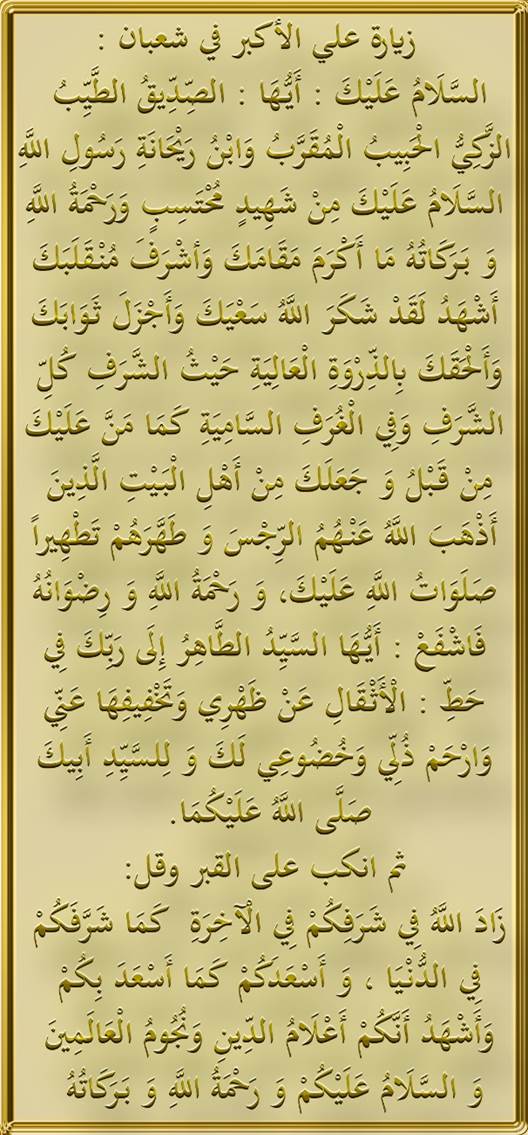 زيارة علي الأكبر في شعبان :
السَّلَامُ عَلَيْكَ : أَيُّهَا : الصِّدِّيقُ الطَّيِّبُ
الزَّكِيُّ الْحَبِيبُ الْمُقَرَّبُ وَابْنُ رَيْحَانَةِ رَسُولِ اللَّهِ
السَّلَامُ عَلَيْكَ مِنْ شَهِيدٍ مُحْتَسِبٍ وَرَحْمَةُ اللَّهِ
وَ بَرَكَاتُهُ مَا أَكْرَمَ مَقَامَكَ وَأشْرَفَ مُنْقَلَبَكَ
أَشْهَدُ لَقَدْ شَكَرَ اللَّهُ سَعْيَكَ وَأَجْزَلَ ثَوَابَكَ
وَأَلْحَقَكَ بِالذِّرْوَةِ الْعَالِيَةِ حَيْثُ الشَّرَفِ كُلِّ
الشَّرَفِ وَفِي الْغُرَفِ السَّامِيَةِ كَمَا مَنَّ عَلَيْكَ
مِنْ قَبْلُ وَ جَعَلَكَ مِنْ أَهْلِ الْبَيْتِ الَّذِينَ
أَذْهَبَ اللَّهُ عَنْهُمُ الرِّجْسَ وَ طَهَّرَهُمْ تَطْهِيراً
صَلَوَاتُ اللَّهِ عَلَيْكَ، وَ رَحْمَةُ اللَّهِ وَ رِضْوَانُهُ
فَاشْفَعْ : أَيُّهَا السَّيِّدُ الطَّاهِرُ إِلَى رَبِّكَ فِي
حَطِّ : الْأَثْقَالِ عَنْ ظَهْرِي وَتَخْفِيفِهَا عَنِّي
وَارْحَمْ ذُلِّي وَخُضُوعِي لَكَ وَ لِلسَّيِّدِ أَبِيكَ
صَلَّى اللَّهُ عَلَيْكُمَا.
ثم انكب على القبر وقل:
زَادَ اللَّهُ فِي شَرَفِكُمْ فِي الْآخِرَةِ كَمَا شَرَّفَكُمْ
فِي الدُّنْيَا ، وَ أَسْعَدَكُمْ كَمَا أَسْعَدَ بِكُمْ
وَأَشْهَدُ أَنَّكُمْ أَعْلَامُ الدِّينِ وَنُجُومُ الْعَالَمِينَ
وَ السَّلَامُ عَلَيْكُمْ وَ رَحْمَةُ اللَّهِ وَ بَرَكَاتُهُ